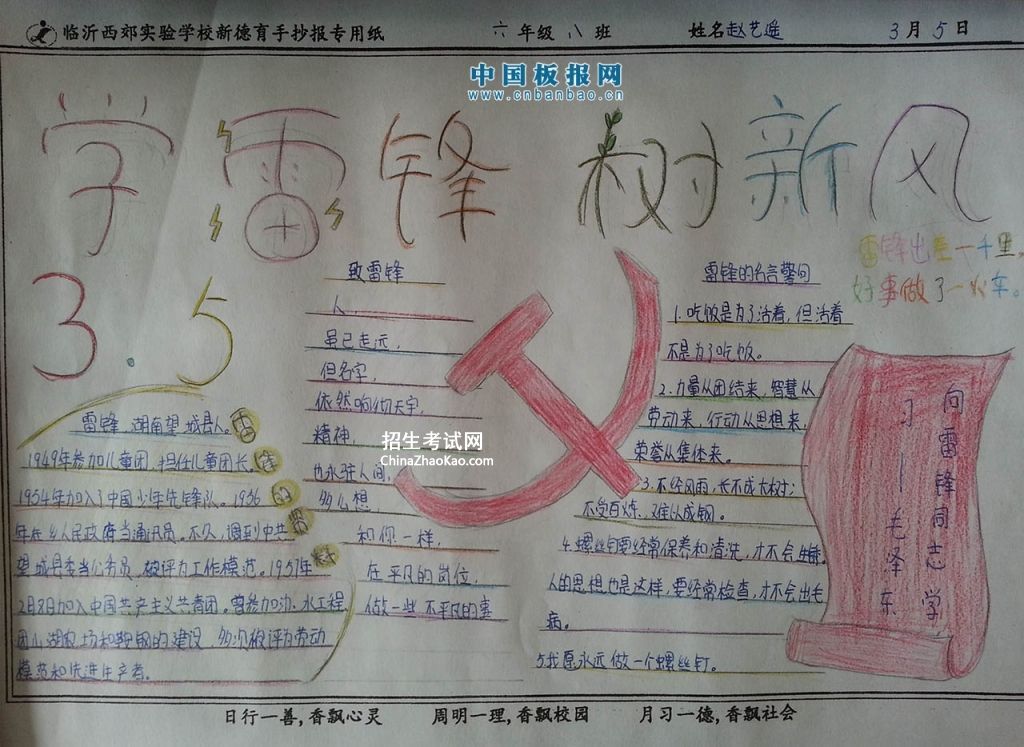 临沂西郊实验学校新德育手抄报专用纸 六年级八班 姓名赵艺遥 3月5日
中国板报网
www.cnbanbao.cn
学雷锋 树新风
雷锋出差一千里,
好事做了一火车。
3.5
雷锋,湖南望城县人。
1949年参加儿童团,担任儿童团长。
1954年加入中国少年先锋队。1956
年在乡人民政府当通讯员。不久,调到中共
望城县委当公务员,被评为工作模范。1957年
2月8日加入中国共产主义共青团。曾参加治水工程,
团山湖农场和鞍钢的建设,多次被评为劳动
模范和先进生产者。
雷
锋
的
资
料
致雷锋
人,
虽已走远,
但名字,
依然响彻天宇,
精神,
也永驻人间,
多么想
和你一样,
在平凡的岗位,
做一些不平凡的事
招生考试网
ChinaZhaoKao.com
雷锋的名言警句
1.吃饭是为了活着,但活着
不是为了吃饭。
2.力量从团结来,智慧从
劳动来,行动从思想来,
荣誉从集体来。
3.不经风雨,长不成大树;
不受百炼,难以成钢。
4.螺丝钉要经常保养和清洗,才不会生锈。
人的思想也是这样,要经常检查,才不会出毛
病。
5我愿永远做一个螺丝钉。
向雷锋同志学
习——毛泽东
日行一善,香飘心灵 周明一理,香飘校园 月习一德,香飘社会